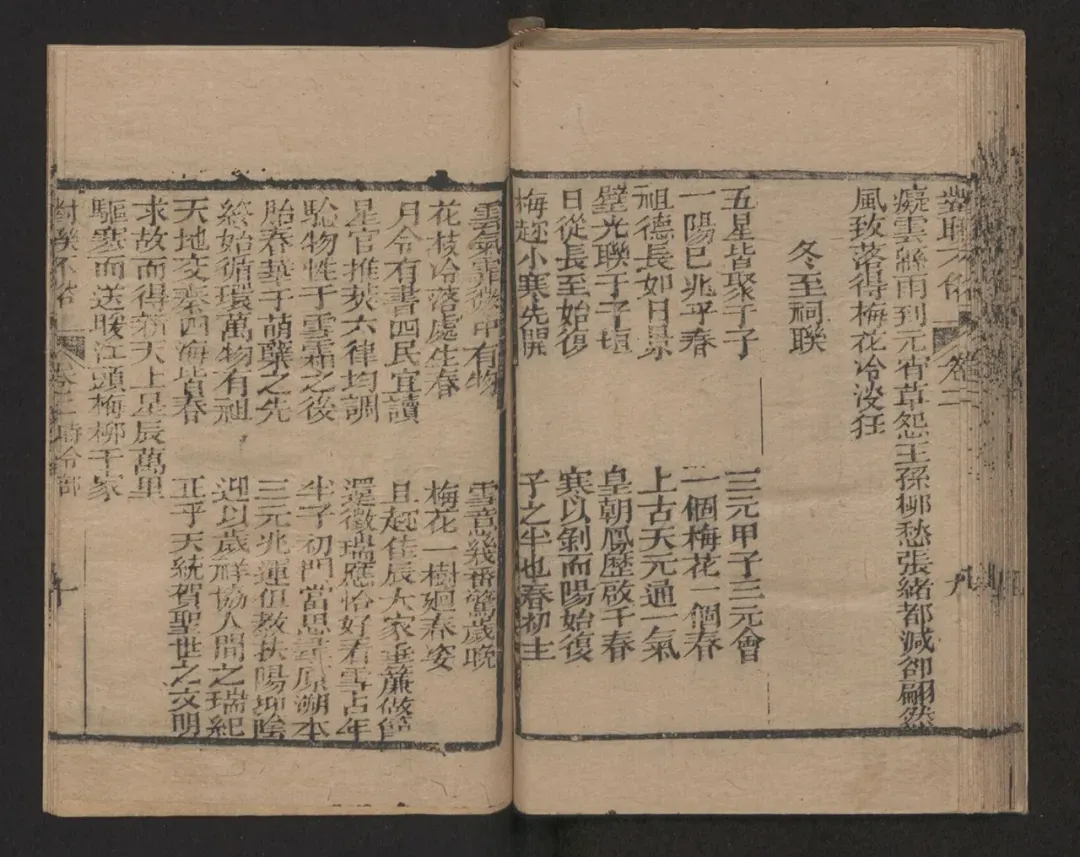 對聯不俗 卷二 九
癡雲絲雨到元宵草怨王孫柳愁張緒都減卻翩然
風致落得梅花冷淡狂
冬至祠聯
五星皆聚于子 三元甲子三元會
一陽已兆乎春 一個梅花一個春
祖德長如日景 上古天元通一氣
壁光聯于子垣 皇朝鳳歷啟千春
日從長至始復 寒以剝而陽始復
梅趂小寒先開 子之半也春初主
有物 雪意幾番驚歲晚
花枝冷落處生春 梅花一樹廻春姿
月令有書四民宜讀 且趂佳辰大家垂簾做節
星官推炭六律均調 還徵瑞應恰好看雪占年
驗物性于雲霜之後 半子初門當思尋原溯本
胎春華于萌蘗之先 三元兆運但教扶陽抑陰
終始循環萬物有祖 迎以歲祥協人間之瑞紀
天地交泰四海皆春 正乎天統賀聖世之文明
求故而得新天上星辰萬里
驅寒而送暖江頭梅柳千家
對聯不俗 卷二 時令部 十